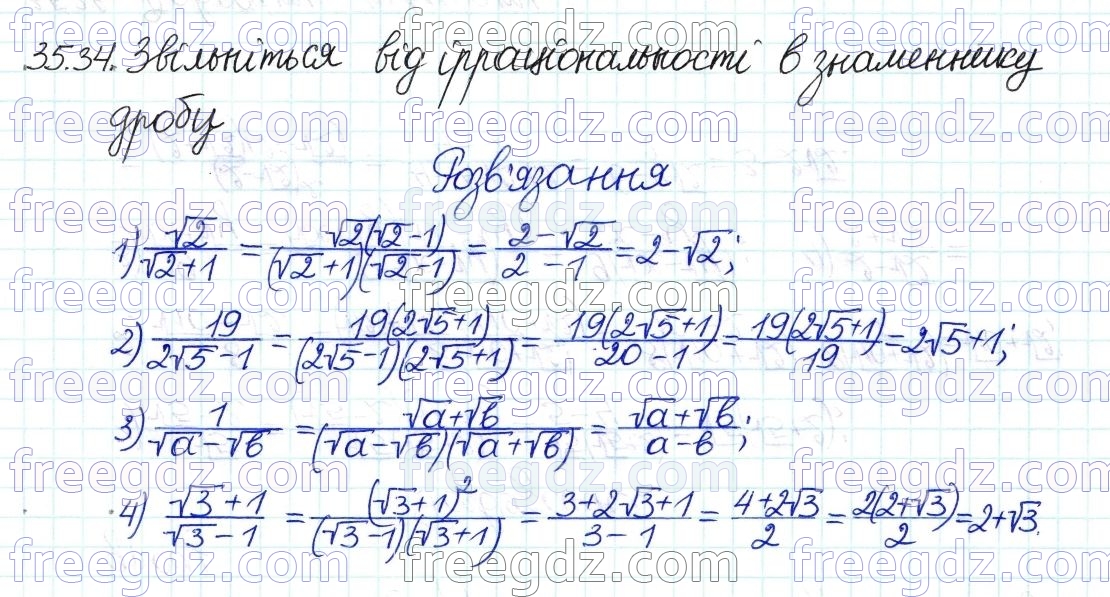 35.34. Звільніться від ірраціональності в знаменнику
дробу
Розв'язання
1) √2/(√2+1) = √2(√2-1)/((√2+1)(√2-1)) = (2-√2)/(2-1) = 2-√2;
2) 19/(2√5-1) = 19(2√5+1)/((2√5-1)(2√5+1)) = 19(2√5+1)/(20-1) = 19(2√5+1)/19 = 2√5+1;
3) 1/(√a-√b) = (√a+√b)/((√a-√b)(√a+√b)) = (√a+√b)/(a-b);
4) (√3+1)/(√3-1) = (√3+1)²/((√3-1)(√3+1)) = (3+2√3+1)/(3-1) = (4+2√3)/2 = 2(2+√3)/2 = 2+√3.
freegdz.com